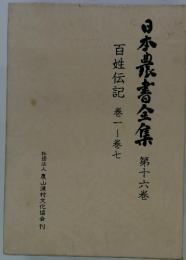 日本農書全集 第十六巻
百姓伝記 巻一―巻七
社団法人 農山漁村文化協会 刊